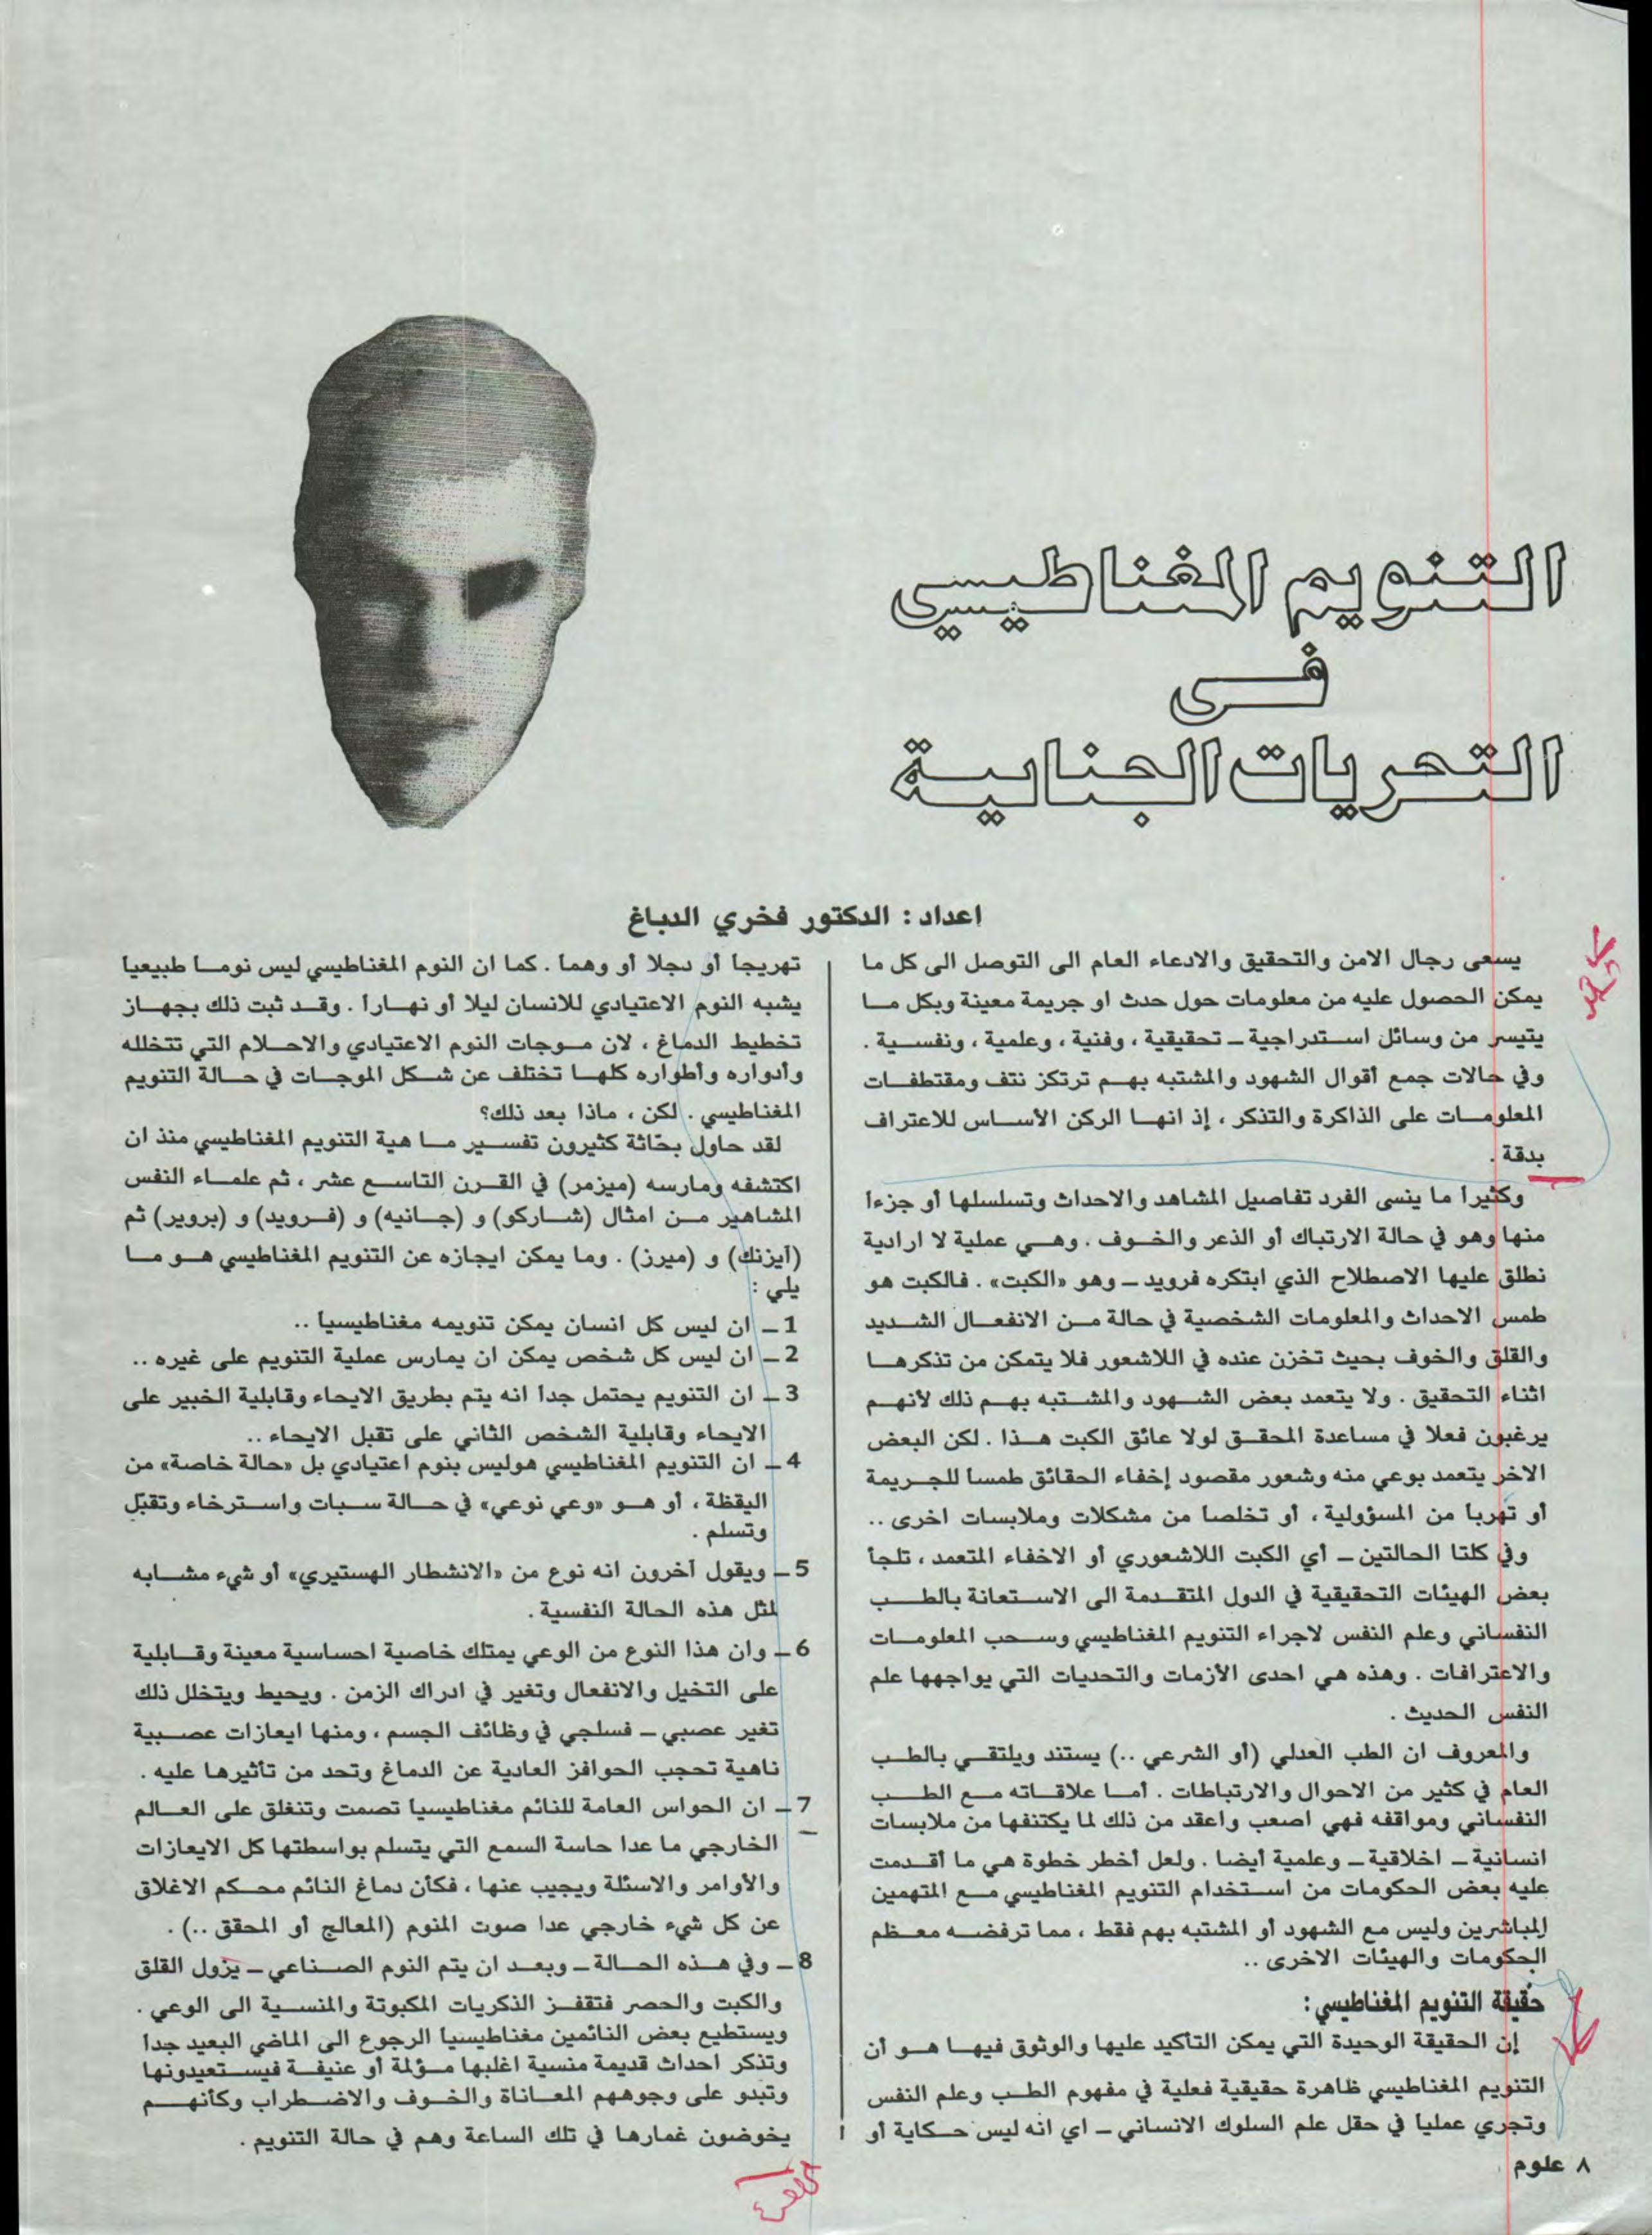 التنويم المغناطيسي
في
التحريات الجنايية
اعداد : الدكتور فخري الدباغ
يسعى رجال الامن والتحقيق والادعاء العام الى التوصل الى كل ما
يمكن الحصول عليه من معلومات حول حدث او جريمة معينة وبكل ما
يتيسر من وسائل استدراجية ـ تحقيقية ، وفنية ، وعلمية ، ونفسية .
وفي حالات جمع أقوال الشهود والمشتبه بهم ترتكز نتف ومقتطفات
المعلومات على الذاكرة والتذكر ، إذ انها الركن الأساس للاعتراف
بدقة .
وكثيراً ما ينسى الفرد تفاصيل المشاهد والاحداث وتسلسلها أو جزءاً
منها وهو في حالة الارتباك أو الذعر والخوف . وهي عملية لا ارادية
نطلق عليها الاصطلاح الذي ابتكره فرويد ـ وهو «الكبت» . فالكبت هو
طمس الاحداث والمعلومات الشخصية في حالة من الانفعال الشديد
والقلق والخوف بحيث تخزن عنده في اللاشعور فلا يتمكن من تذكرها
اثناء التحقيق . ولا يتعمد بعض الشهود والمشتبه بهم ذلك لأنهم
يرغبون فعلا في مساعدة المحقق لولا عائق الكبت هذا . لكن البعض
الاخر يتعمد بوعي منه وشعور مقصود إخفاء الحقائق طمسا للجريمة
أو تهربا من المسؤولية ، أو تخلصاً من مشكلات وملابسات اخرى ..
وفي كلتا الحالتين ـ أي الكبت اللاشعوري أو الاخفاء المتعمد ، تلجأ
بعض الهيئات التحقيقية في الدول المتقدمة الى الاستعانة بالطب
النفساني وعلم النفس لاجراء التنويم المغناطيسي وسحب المعلومات
والاعترافات . وهذه هي احدى الأزمات والتحديات التي يواجهها علم
النفس الحديث .
والمعروف ان الطب العدلي (أو الشرعي ..) يستند ويلتقي بالطب
العام في كثير من الاحوال والارتباطات . أما علاقاته مع الطب
النفساني ومواقفه فهي اصعب واعقد من ذلك لما يكتنفها من ملابسات
انسانية ـ اخلاقية ـ وعلمية أيضا . ولعل أخطر خطوة هي ما أقدمت
عليه بعض الحكومات من استخدام التنويم المغناطيسي مع المتهمين
المباشرين وليس مع الشهود أو المشتبه بهم فقط ، مما ترفضه معظم
الحكومات والهيئات الاخرى ..
حقيقة التنويم المغناطيسي :
إن الحقيقة الوحيدة التي يمكن التأكيد عليها والوثوق فيها هو أن
التنويم المغناطيسي ظاهرة حقيقية فعلية في مفهوم الطب وعلم النفس
وتجري عمليا في حقل علم السلوك الانساني ـ اي انه ليس حكاية أو
تهريجا أو دجلا أو وهما . كما ان النوم المغناطيسي ليس نوما طبيعيا
يشبه النوم الاعتيادي للانسان ليلا أو نهاراً . وقد ثبت ذلك بجهاز
تخطيط الدماغ ، لان موجات النوم الاعتيادي والاحلام التي تتخلله
وأدواره وأطواره كلها تختلف عن شكل الموجات في حالة التنويم
المغناطيسي . لكن ، ماذا بعد ذلك؟
لقد حاول بحّاثة كثيرون تفسير ما هية التنويم المغناطيسي منذ ان
اكتشفه ومارسه (ميزمر) في القرن التاسع عشر ، ثم علماء النفس
المشاهير من امثال (شاركو) و (جانيه) و (فرويد) و (بروير) ثم
(آيزنك) و (ميرز) . وما يمكن ايجازه عن التنويم المغناطيسي هو ما
يلي :
1 ـ ان ليس كل انسان يمكن تنويمه مغناطيسياً ..
2 ـ ان ليس كل شخص يمكن ان يمارس عملية التنويم على غيره ..
3 ـ ان التنويم يحتمل جداً انه يتم بطريق الايحاء وقابلية الخبير على
الايحاء وقابلية الشخص الثاني على تقبل الايحاء ..
4 ـ ان التنويم المغناطيسي هوليس بنوم اعتيادي بل «حالة خاصة» من
اليقظة ، أو هو «وعي نوعي» في حالة سبات واسترخاء وتقبّل
وتسلم .
5 ـ ويقول آخرون انه نوع من «الانشطار الهستيري» أو شيء مشابه
لمثل هذه الحالة النفسية .
6 ـ وان هذا النوع من الوعي يمتلك خاصية احساسية معينة وقابلية
على التخيل والانفعال وتغير في ادراك الزمن . ويحيط ويتخلل ذلك
تغير عصبي ـ فسلجي في وظائف الجسم ، ومنها ايعازات عصبية
ناهية تحجب الحوافز العادية عن الدماغ وتحد من تأثيرها عليه .
7 ـ ان الحواس العامة للنائم مغناطيسيا تصمت وتنغلق على العالم
الخارجي ما عدا حاسة السمع التي يتسلم بواسطتها كل الايعازات
والأوامر والاسئلة ويجيب عنها ، فكأن دماغ النائم محكم الاغلاق
عن كل شيء خارجي عدا صوت المنوم (المعالج أو المحقق ..) .
8 ـ وفي هذه الحالة ـ وبعد ان يتم النوم الصناعي ـ يزول القلق
والكبت والحصر فتقفز الذكريات المكبوتة والمنسية الى الوعي .
ويستطيع بعض النائمين مغناطيسيا الرجوع الى الماضي البعيد جداً
وتذكر احداث قديمة منسية اغلبها مؤلمة أو عنيفة فيستعيدونها
وتبدو على وجوههم المعاناة والخوف والاضطراب وكأنهم
يخوضون غمارها في تلك الساعة وهم في حالة التنويم .
٨ علوم